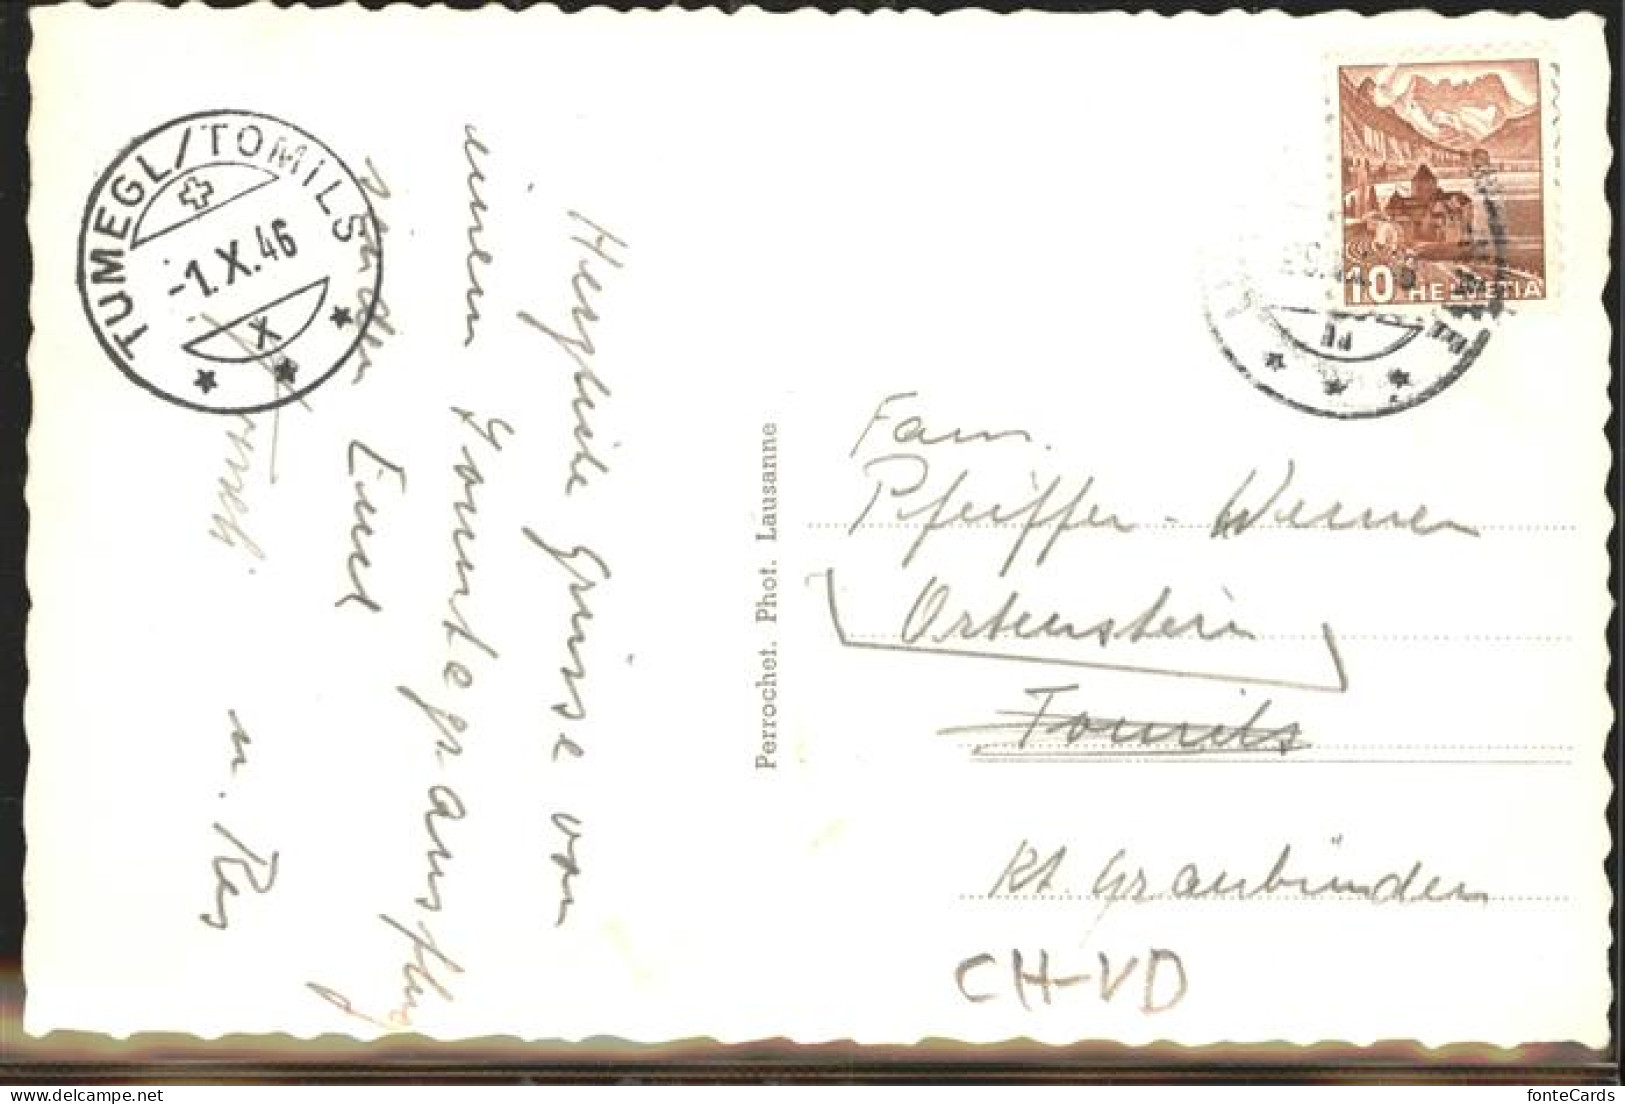 TUMEGL/TOMILS
-1.X.46
X
10 HELVETIA
Herzliche Grüsse von
einem Sonntagsausflug
senden Euch
u. Res
Perrochet. Phot. Lausanne
Fam.
Pfeiffer - Werner
Ortenstein
Tomils
Kt. Graubünden
CH-VD
fonteCards